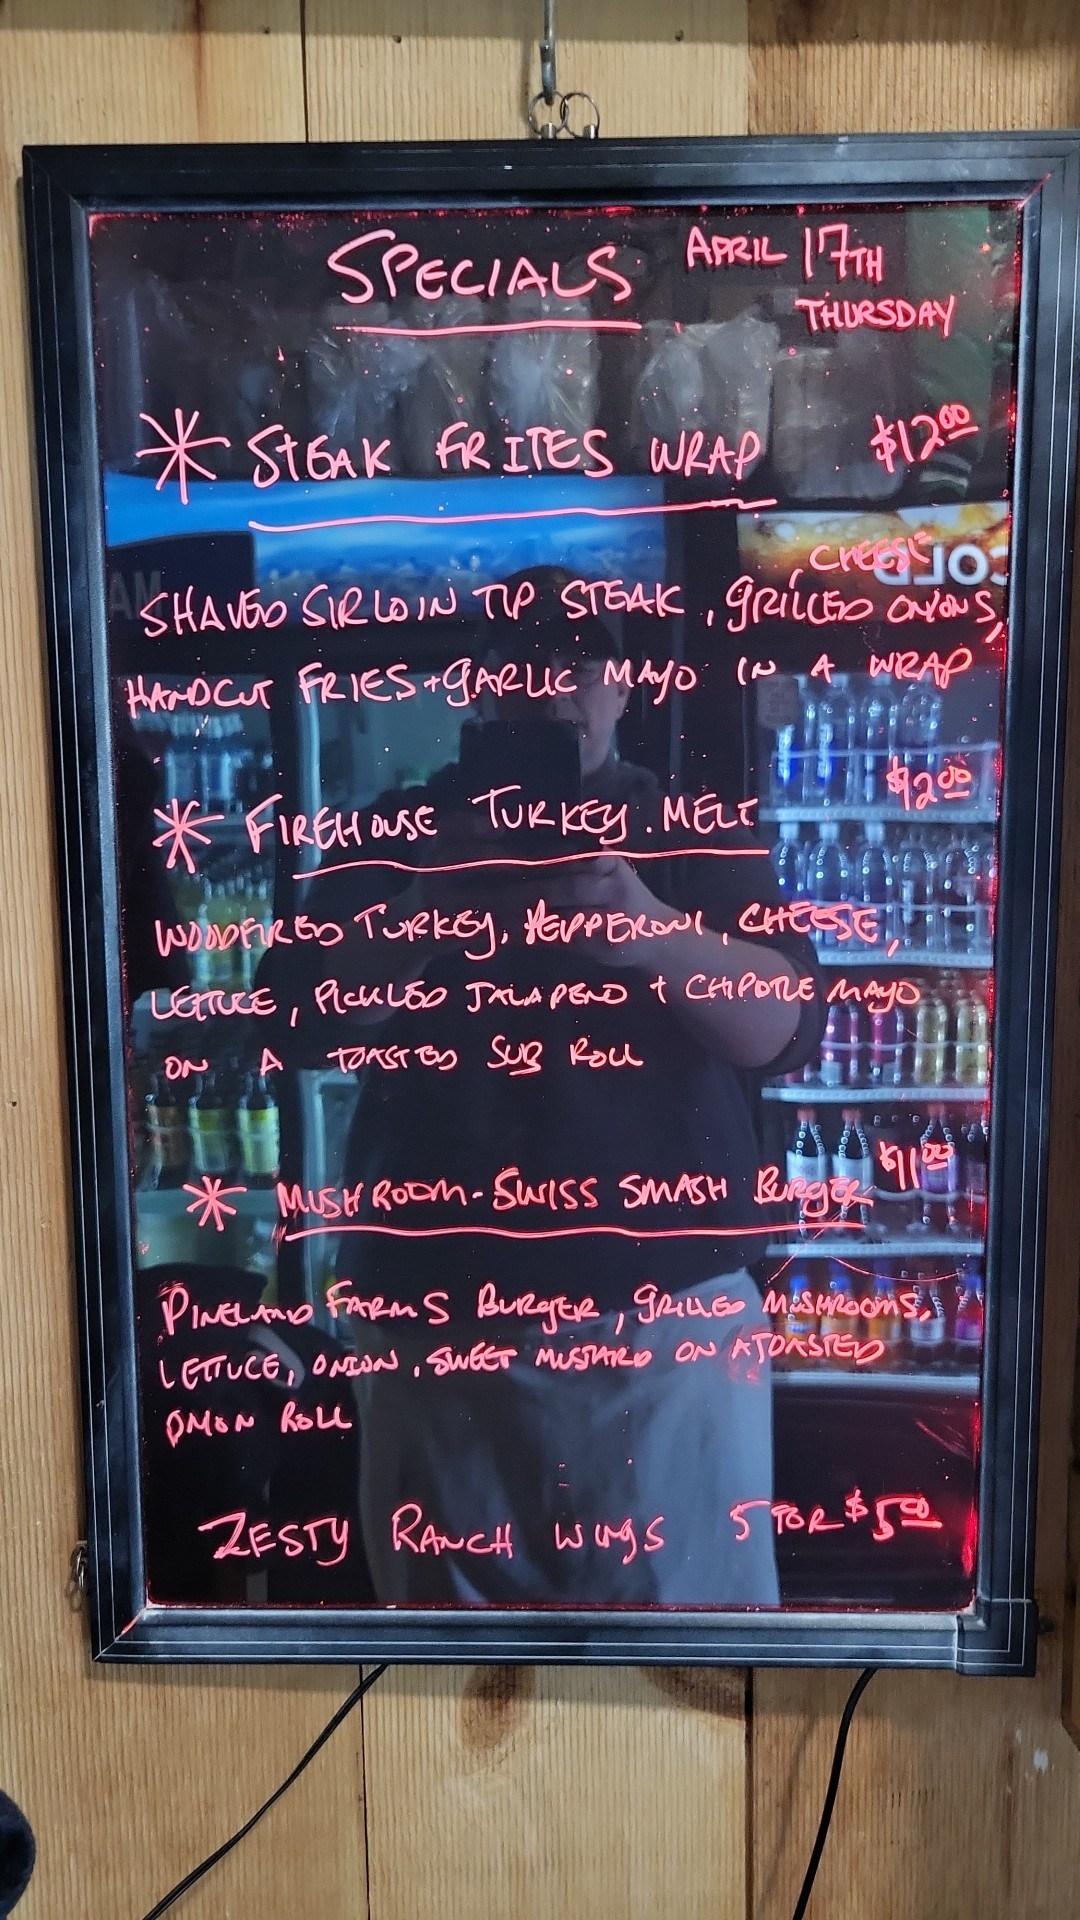 SPECIALS APRIL 17TH
THURSDAY
* STEAK FRITES WRAP $12.00
CHEESE
SHAVED SIRLOIN TIP STEAK, GRILLED ONIONS,
HANDCUT FRIES + GARLIC MAYO IN A WRAP
* FIREHOUSE TURKEY. MELT $12.00
WOODFIRED TURKEY, PEPPERONI, CHEESE,
LETTUCE, PICKLED JALAPENO + CHIPOTLE MAYO
ON A TOASTED SUB ROLL
* MUSHROOM-SWISS SMASH BURGER $11.00
PINELAND FARMS BURGER, GRILLED MUSHROOMS,
LETTUCE, ONION, SWEET MUSTARD ON A TOASTED
ONION ROLL
ZESTY RANCH WINGS 5 FOR $5.00
COLD